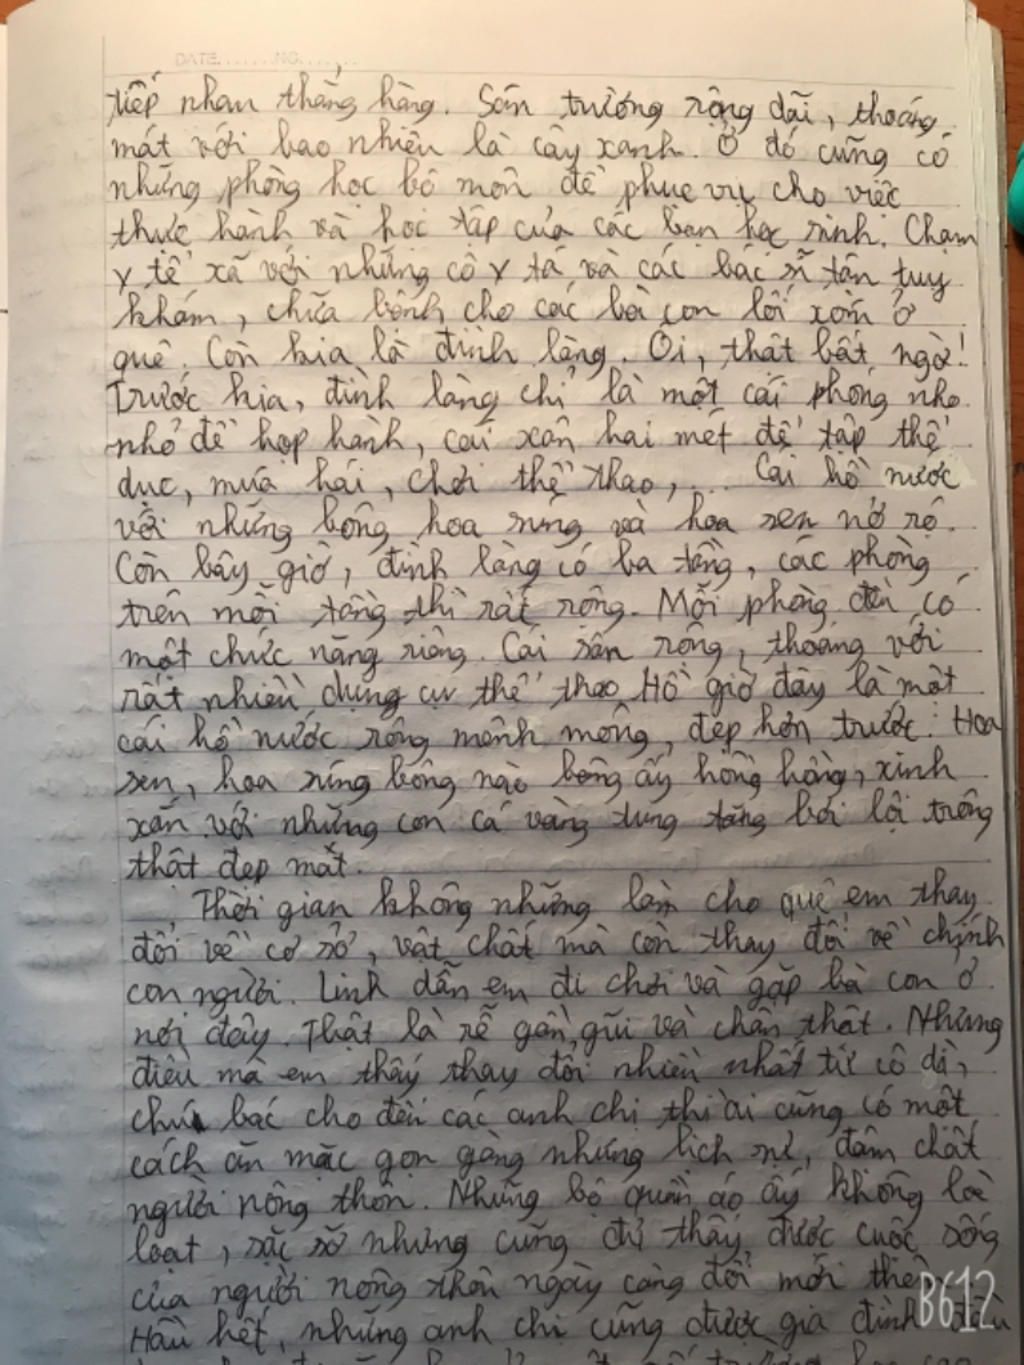 DATE.......NO.......
tiếp nhau thẳng hàng. Sân trường rộng dãi, thoáng
mát với bao nhiêu là cây xanh. Ở đó cũng có
những phòng học bộ môn để phục vụ cho việc
thực hành và học tập của các bạn học sinh. Chạm
y tế xã với những cô y tá và các bác sĩ tận tụy
khám, chữa bệnh cho các bà con lối xóm ở
quê. Còn kia là đình làng. Ôi, thật bất ngờ!
Trước kia, đình làng chỉ là một cái phòng nho
nhỏ để họp hành, cái xân hai mét để tập thể
dục, múa hát, chơi thể thao,... Cái hồ nước
với những bông hoa súng và hoa sen nở rộ.
Còn bây giờ, đình làng có ba tầng, các phòng
trên mỗi tầng thì rất rộng. Mỗi phòng đều có
một chức năng riêng. Cái sân rộng, thoáng với
rất nhiều dụng cụ thể thao. Hồ giờ đây là một
cái hồ nước rộng mênh mông, đẹp hơn trước. Hoa
sen, hoa súng bông nào bông ấy hồng hồng, xinh
xắn với những con cá vàng tung tăng bơi lội trông
thật đẹp mắt.
Thời gian không những làm cho quê em thay
đổi về cơ sở, vật chất mà còn thay đổi về chính
con người. Linh dẫn em đi chơi và gặp bà con ở
nơi đây. Thật là rễ gần, gũi và chân thật. Nhưng
điều mà em thấy thay đổi nhiều nhất từ cô dì,
chú bác cho đến các anh chị thì ai cũng có một
cách ăn mặc gọn gàng nhưng lịch sự, đậm chất
người nông thôn. Những bộ quần áo ấy không loè
loạt, sặc sỡ nhưng cũng đủ thấy được cuộc sống
của người nông thôn ngày càng đổi mới
Hầu hết, những anh chị cũng được gia đình
B612